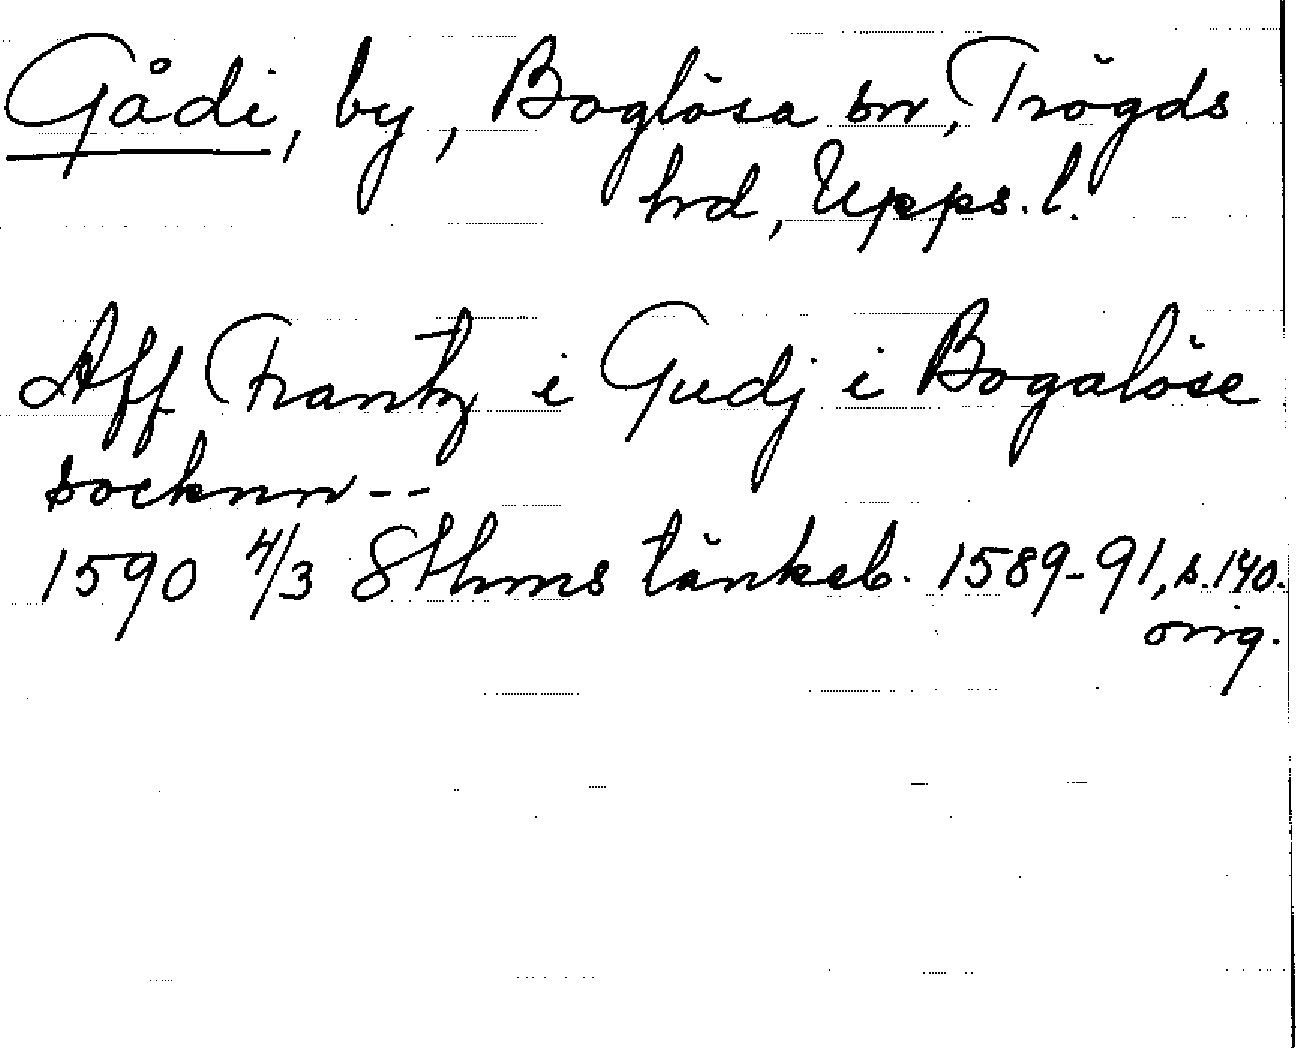 Gådi, by, Boglösa sn, Trögds
hrd, Upps. l.
Aff Frantz i Gudj i Bogalöse
socknn--
1590 4/3 Sthms tänkeb. 1589-91, s. 140.
orig.